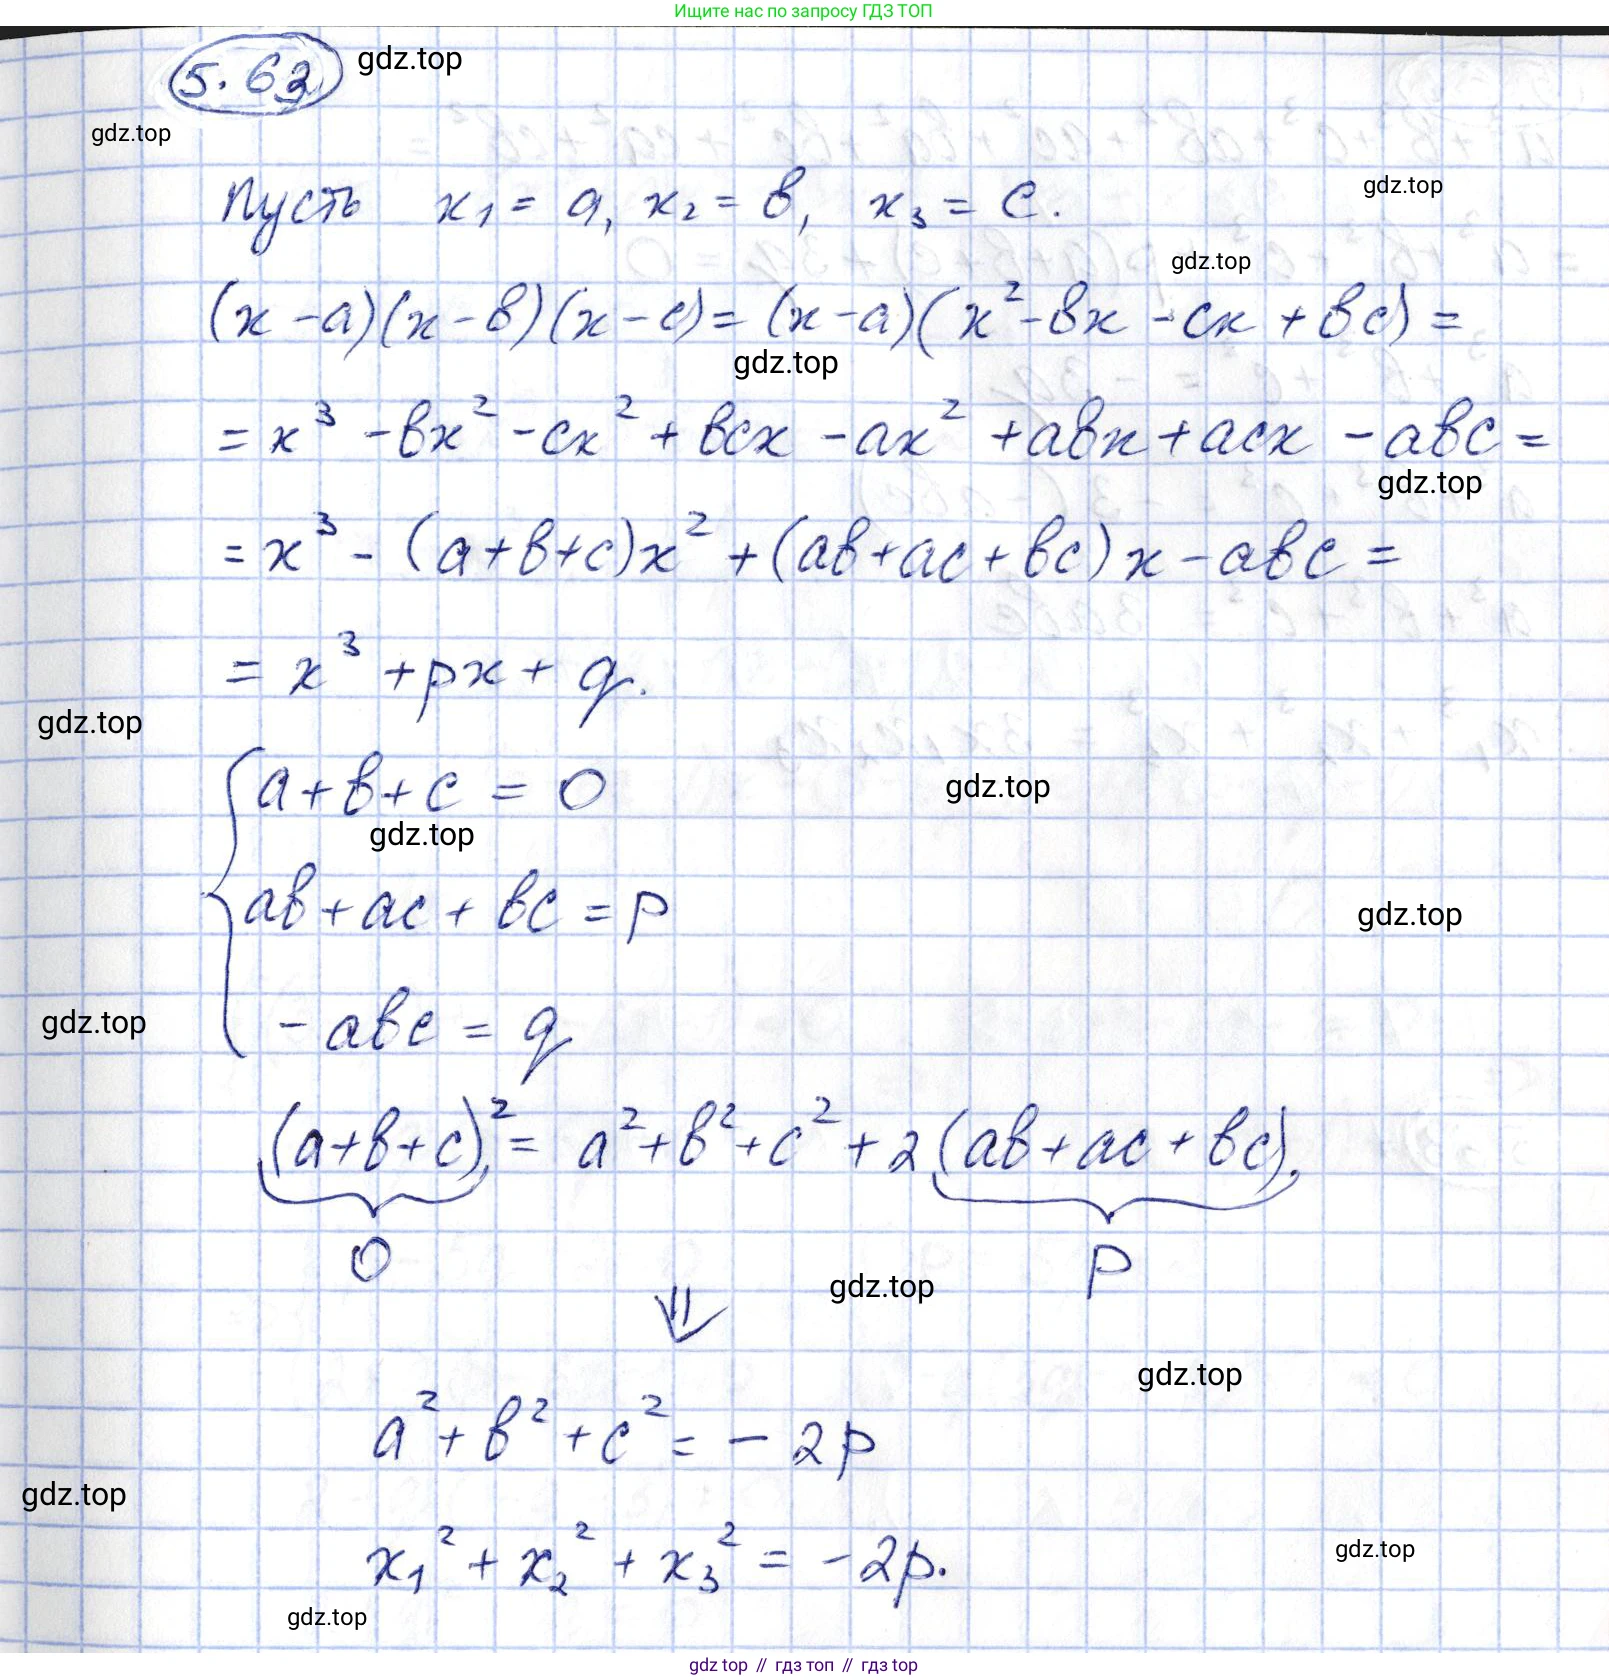 Ищите нас по запросу ГДЗ ТОП
5.63 gdz.top
gdz.top
Пусть x₁ = a, x₂ = в, x₃ = c.
gdz.top
gdz.top
(x - a)(x - в)(x - c) = (x - a)(x² - вx - cx + вc) =
gdz.top
= x³ - вx² - cx² + вcx - ax² + aвx + acx - aвc =
gdz.top
= x³ - (a + в + c)x² + (aв + ac + вc)x - aвc =
= x³ + px + q.
gdz.top
a + в + c = 0
gdz.top
gdz.top
aв + ac + вc = p
gdz.top
- aвc = q
gdz.top
(a + в + c)² = a² + в² + c² + 2(aв + ac + вc).
0 p
gdz.top
⇓
gdz.top
a² + в² + c² = - 2p
gdz.top
x₁² + x₂² + x₃² = -2p.
gdz.top
gdz.top
gdz top // гдз топ // гдз top